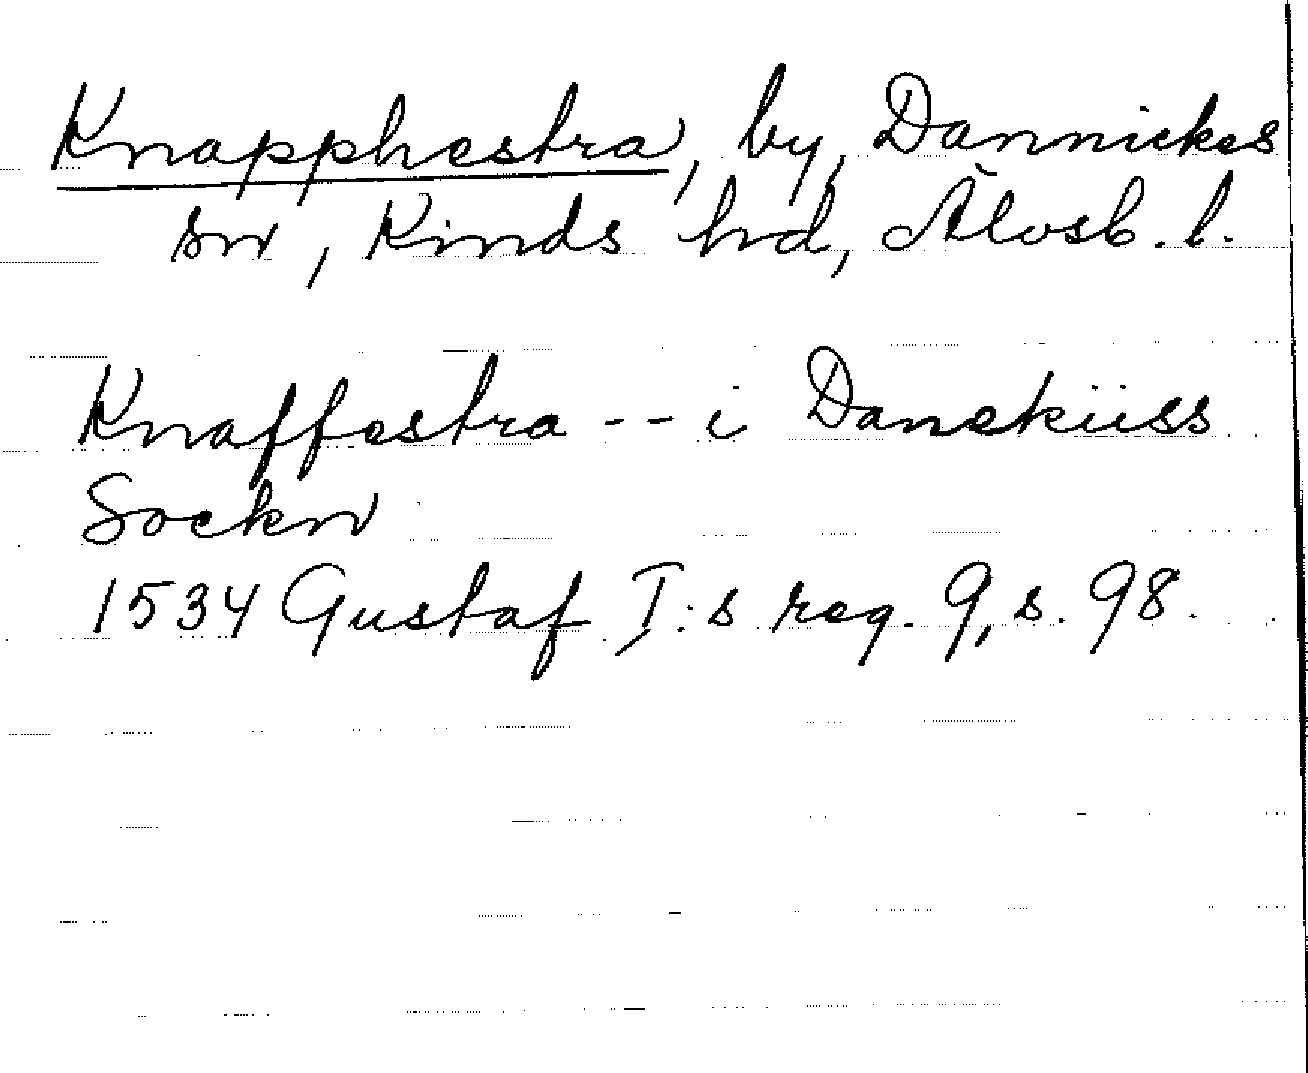 Knapphestra, by, Dannickes
sn, Kinds hd, Älvsb. l.
Knaffestra -- i Danekiiss
Sockn
1534 Gustaf I:s reg. 9, s. 98.